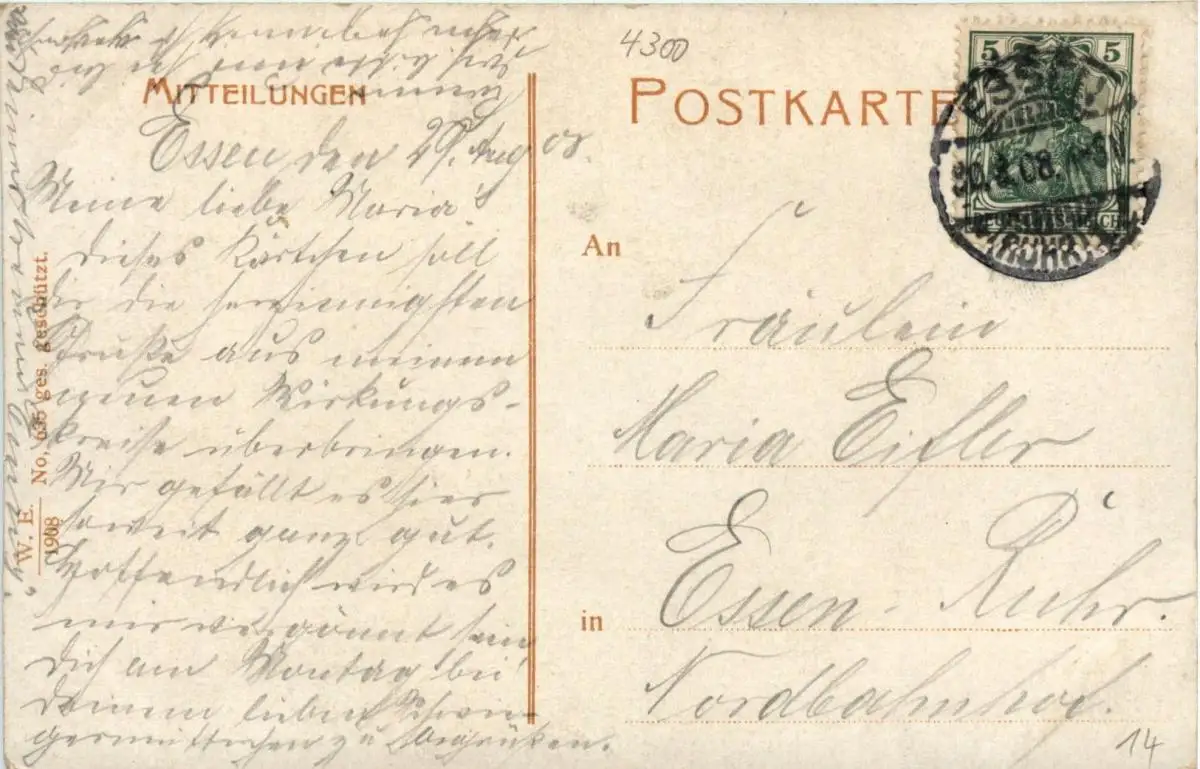 MITTEILUNGEN
Essen den 29. Aug 08.
Meine liebe Maria!
dieses Kärtchen soll
dir die herzinnigsten
Grüße aus meinem
neuen Wirkungs-
kreise überbringen.
Mir gefällt es hier
soweit ganz gut.
Hoffendlich wird es
mir vergönnt sein,
dich am Montag bei
deinem lieben Schwie-
germütterchen zu begrüßen.
W. E.
1908
No. 635 ges. geschützt.
4300
POSTKARTE
5 5
ESSEN
30.8.08.
(RUHR)
An Fräulein
Maria Eifler
in Essen-Ruhr.
Nordbahnhof.
14